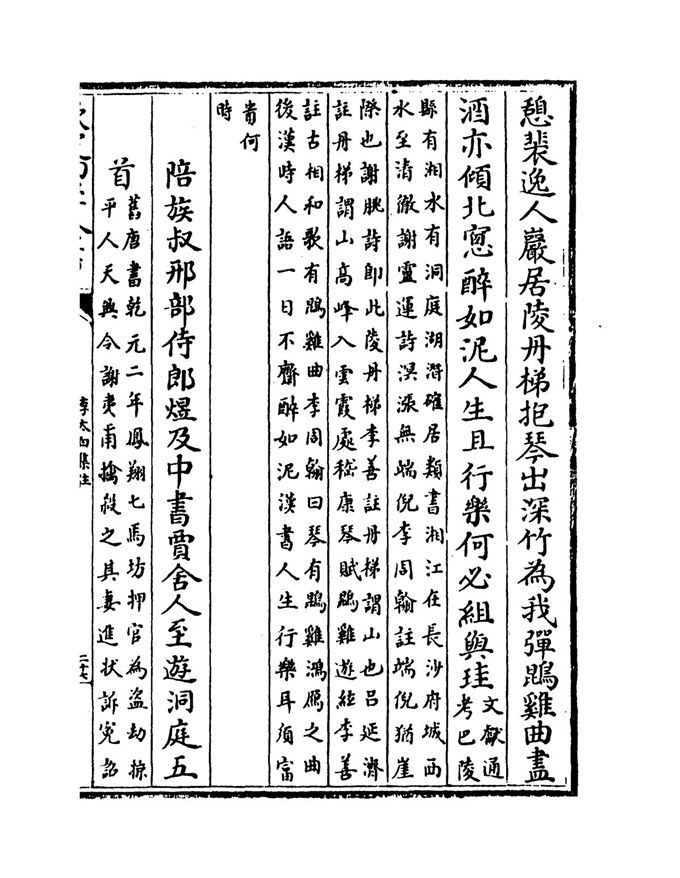 憩裴逸人巖居陵丹梯抱琴出深竹為我彈鵾雞曲盡
酒亦傾北窻醉如泥人生且行樂何必組與珪
文獻通
考巴陵
縣有湘水有洞庭湖潛確居類書湘江在長沙府城西
水至清徹謝靈運詩溟漲無端倪李周翰註端倪猶崖
際也謝朓詩即此陵丹梯李善註丹梯謂山也呂延濟
註丹梯謂山高峰入雲霞處嵇康琴賦鵾雞遊絃李善
註古相和歌有鵾雞曲李周翰曰琴有鵾雞鴻鴈之曲
後漢時人語一日不齋醉如泥漢書人生行樂耳須富
貴何
時
陪族叔邢部侍郎煜及中書賈舍人至遊洞庭五
首
舊唐書乾元二年鳳翔七馬坊押官為盗劫掠
平人天興令謝夷甫擒殺之其妻進狀訴寃詔
李太白集注